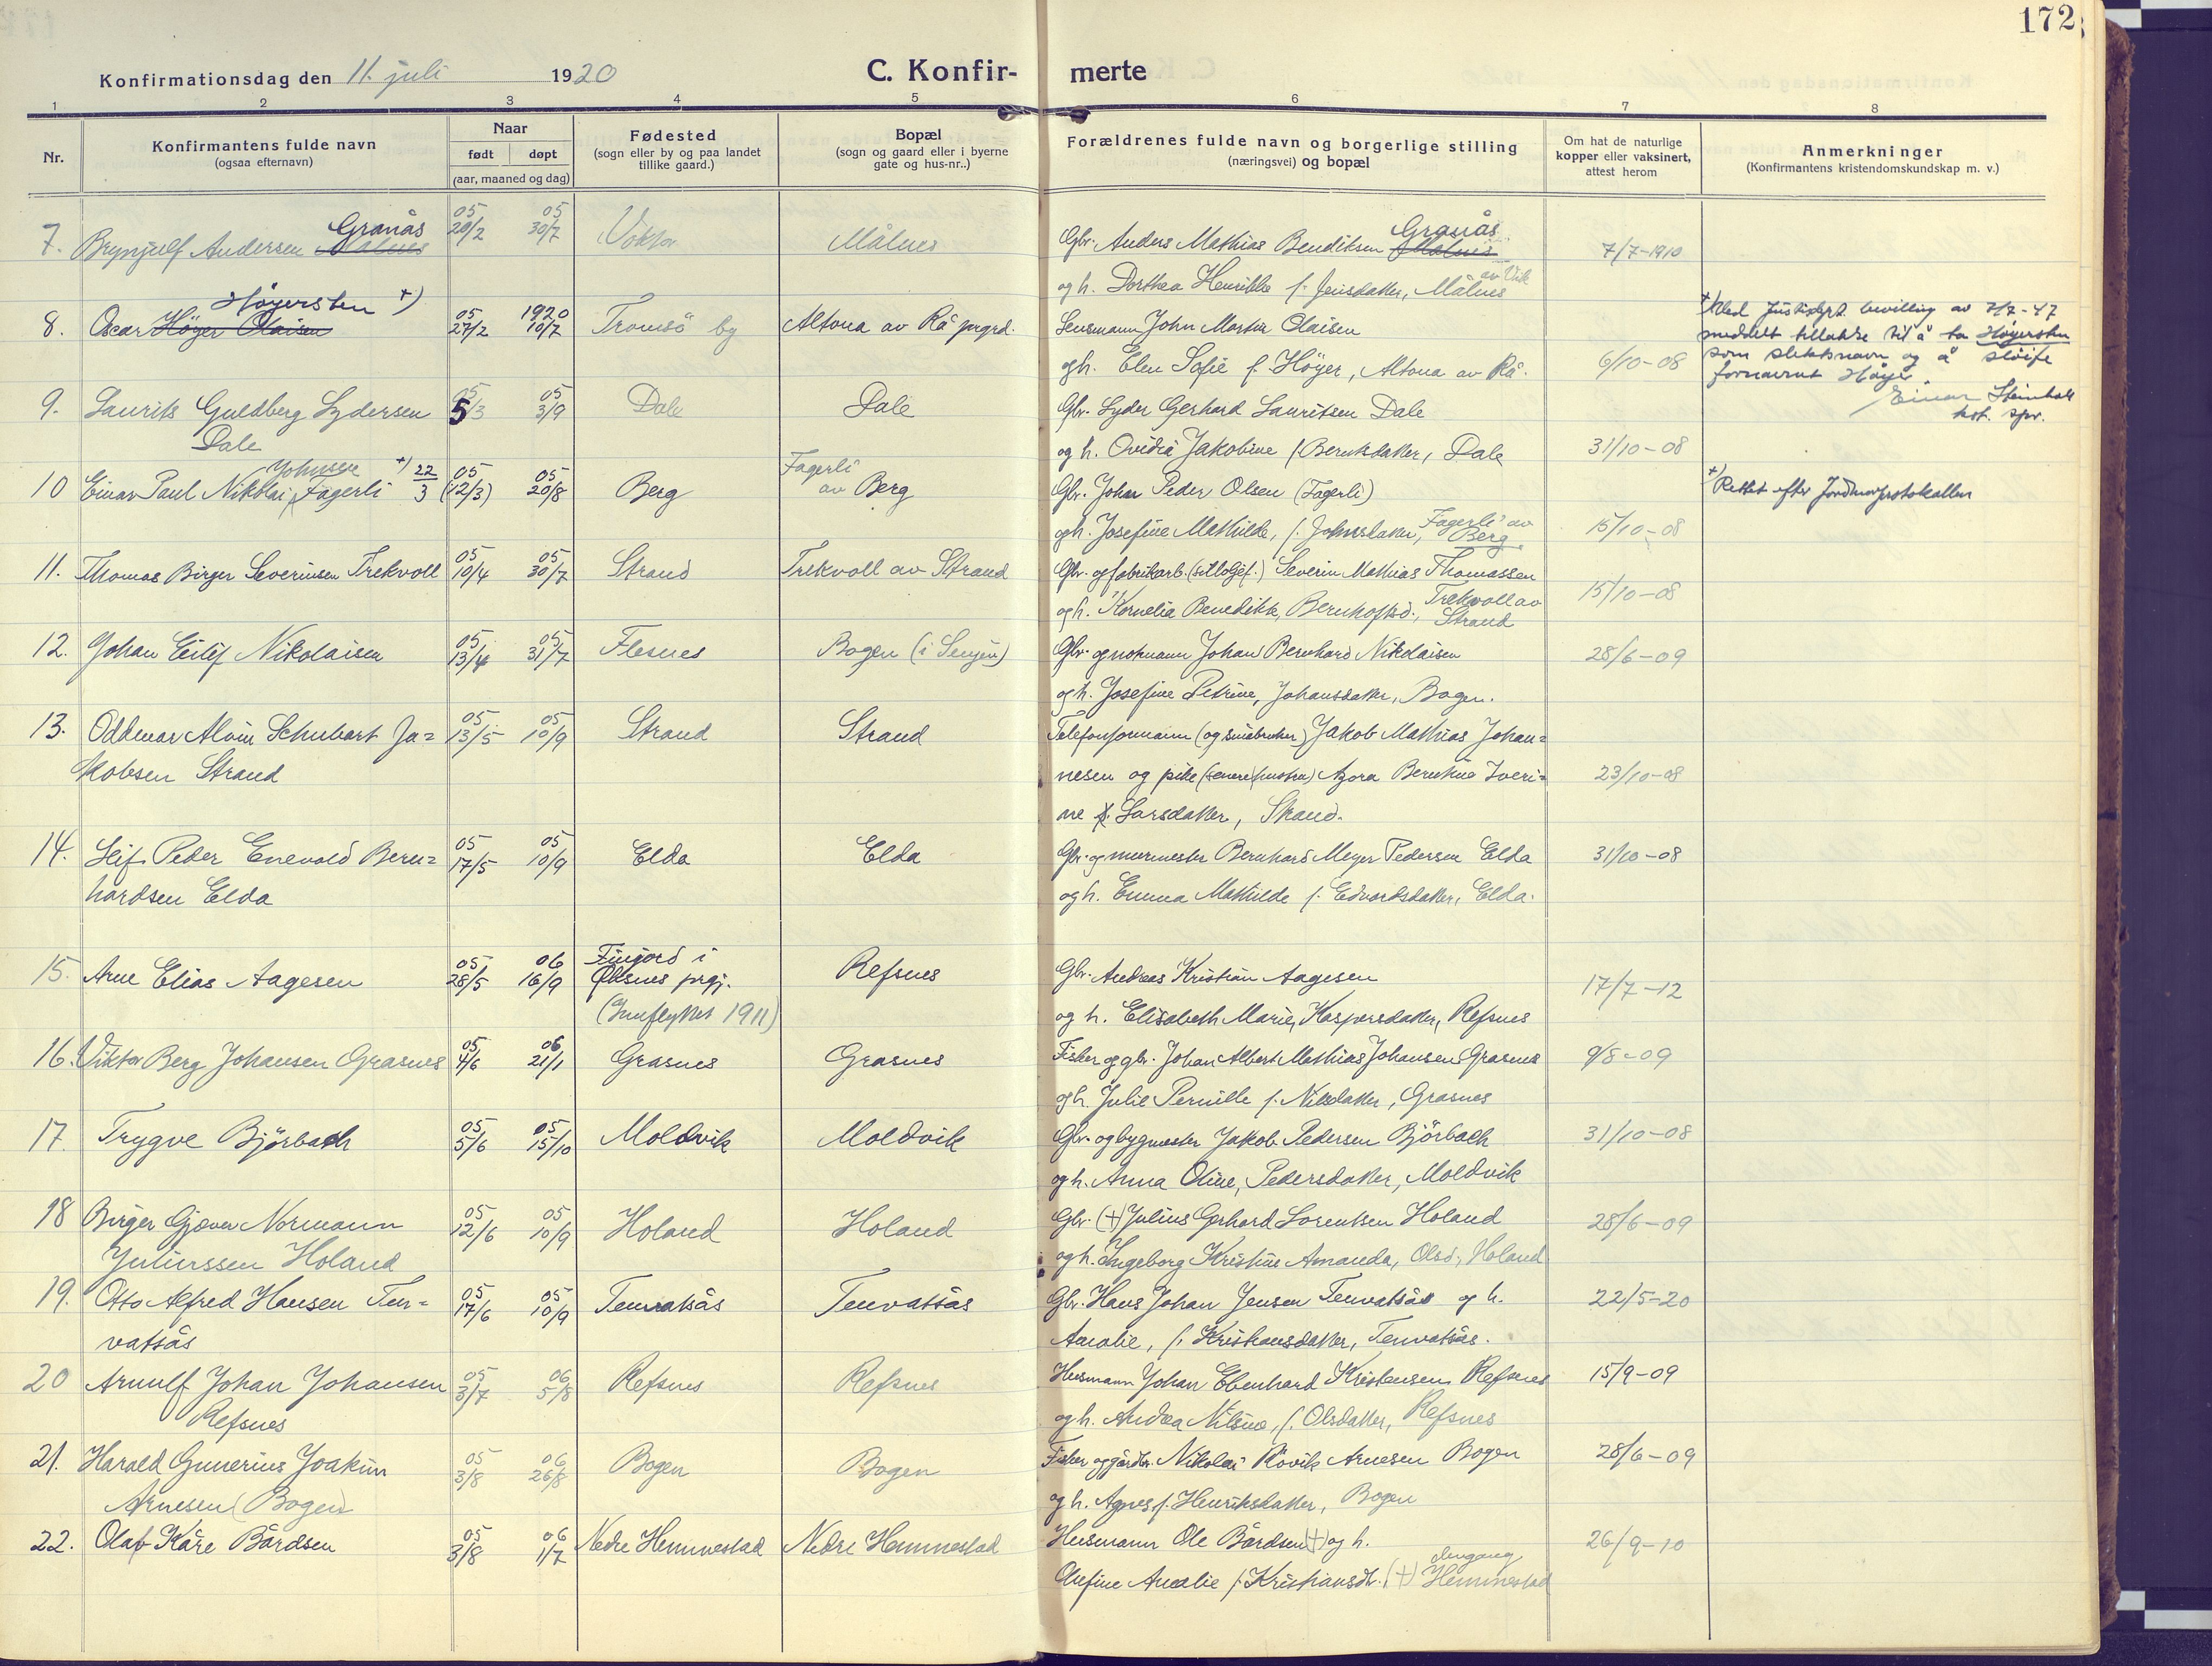 172
Konfirmationsdag den 11. juli 1920
C. Konfirmerte
1 2 3 4 5 6 7 8
Nr.
Konfirmantens fulde navn
(ogsaa efternavn)
Naar
født døpt
(aar, maaned og dag)
Fødested
(sogn eller by og paa landet
tillike gaard.)
Bopæl
(sogn og gaard eller i byerne
gate og hus-nr..)
Forældrenes fulde navn og borgerlige stilling
(næringsvei) og bopæl
Om hat de naturlige
kopper eller vaksinert,
attest herom
Anmerkninger
(Konfirmantens kristendomskundskap m. v.)
Granås
7. Brynjulf Andersen Målnes 05 20/2 05 30/7 Målnes Gbr. Anders Mathias Bendiksen Målnes Granås 7/7-1910
og h. Dorthea Henrikke f. Jensdatter, Målnes av Vik
Høyersten +)
8. Oscar Höyer Olaisen 05 27/2 1920 10/7 Tromsö by Altona av Rå prgrd. Lensmann John Martin Olaisen
og h. Elen Sofie f. Höyer, Altona av Rå. 6/10-08
+) Ved Justisdept. bevilling av 7/7-47
meddelt tillatelse til å ta Høyersten
som slektsnavn og å sløife
fornavnet Høyer.
Einar Steinholt
kst. spr.
9. Laurits Guldberg Lydersen 05 5/3 05 3/9 Dale Dale Gbr. Lyder Gerhard Lauritsen Dale
Dale og h. Ovidia Jakobine f. Berntsdatter, Dale 31/10-08
Johnsen +) 22/3
10 Einar Paul Nikolai Fagerli 05 (12/3) 05 20/8 Berg Fagerli av Berg Gbr. Johan Peder Olsen (Fagerli)
og h. Josefine Mathilde, f. Johnsdatter, Fagerli av Berg. 15/10-08
+) Rettet efter Jordmorprotokollen
11. Thomas Birger Severinsen Trekvoll 05 10/4 05 30/7 Strand Trekvoll av Strand Gbr. og fabrikarb. (silloljef.) Severin Mathias Thomassen
og h. Kornelia Benedikte, Berntoftsd., Trekvoll av Strand 15/10-08
12. Johan Eilif Nikolaisen 05 13/4 05 31/7 Flesnes Bogen (i Senjen) Gbr. og notmann Johan Bernhard Nikolaisen 28/6-09
og h. Josefine Petrine, Johansdatter, Bogen.
13. Oddmar Alvin Schubart Ja= 05 13/5 05 10/9 Strand Strand Telefonformann (og småbruker) Jakob Mathias Johan=
kobsen Strand nesen og pike (senere hustru) Agora Berntine Iveri= 23/10-08
ne f. Larsdatter, Strand.
14. Leif Peder Enevold Bern= 05 17/5 05 10/9 Elda Elda Gbr. og murmester Bernhard Meyer Pedersen Elda 31/10-08
hardsen Elda og h. Emma Mathilde f. Edvardsdatter, Elda.
15. Arne Elias Aagesen 05 28/5 06 16/9 Finjord i Øksnes prgj. (Innflyttet 1911) Refsnes Gbr. Andreas Kristian Aagesen 17/7-12
og h. Elisabeth Marie, Kaspersdatter, Refsnes
16. Viktor Berg Johansen Grasnes 05 4/6 06 21/1 Grasnes Grasnes Fisker og gbr. Johan Albert Mathias Johansen Grasnes 9/8-09
og h. Julie Pernille f. Nilsdatter, Grasnes
17. Trygve Björbach 05 5/6 05 15/10 Moldvik Moldvik Gbr. og bygmester Jakob Pedersen Björbach 31/10-08
og h. Anna Oline, Pedersdatter, Moldvik
18 Birger Gjæver Normann 05 12/6 05 10/9 Holand Holand Gbr. (+) Julius Gerhard Lorentsen Holand 28/6-09
Juliussen Holand og h. Ingeborg Kristine Amanda, Olsd., Holand
19. Otto Alfred Hansen Ten= 05 17/6 05 10/9 Tenvatsås Tenvatsås Gbr. Hans Johan Jensen Tenvatsås og h. 22/5-20
vatsås Amalie, f. Kristiansdatter, Tenvatsås.
20 Arnulf Johan Johansen 05 3/7 06 5/8 Refsnes Refsnes Husmann Johan Ebenhard Kristensen Refsnes 15/9-09
Refsnes og h. Andrea Nilsine, f. Olsdatter, Refsnes
21. Harald Gunerius Joakim 05 3/8 06 26/8 Bogen Bogen Fisker og gårdbr. Nikolai Rövik Arnesen Bogen 28/6-09
Arnesen (Bogen) og h. Agnes f. Henriksdatter, Bogen
22. Olaf Kåre Bårdsen 05 3/8 06 1/7 Nedre Hemmestad Nedre Hemmestad Husmann Ole Bårdsen (+) og h. 26/9-10
Amalie f. Kristiansdtr. (+) Hemmestad